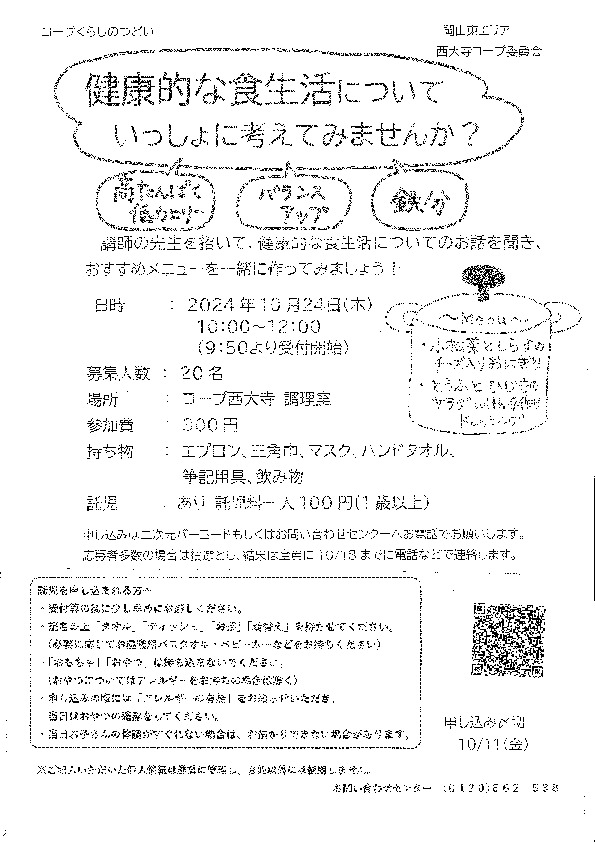 コープくらしのつどい
岡山東エリア
西大寺コープ委員会
健康的な食生活について
いっしょに考えてみませんか？
高たんぱく
低カロリー
バランス
アップ
鉄分
講師の先生を招いて、健康的な食生活についてのお話を聞き、
おすすめメニューを一緒に作ってみましょう！
日時 ： 2024年10月24日(木)
10:00～12:00
(9:50より受付開始)
募集人数 ： 20名
場所 ： コープ西大寺 調理室
参加費 ： 300円
持ち物 ： エプロン、三角巾、マスク、ハンドタオル、
筆記用具、飲み物
託児 ： あり 託児料一人100円(1歳以上)
～Menu～
・小松菜としらすの
チーズ入りおにぎり
・とうふとひじきの
サラダ
ドレッシング
申し込みは二次元バーコードもしくはお問い合わせセンターへお電話でお願いします。
応募者多数の場合は抽選とし、結果は全員に10/18までに電話などで連絡します。
託児を申し込まれる方へ
・受付等の為に少し早めにお越しください。
・記名の上「タオル」「ティッシュ」「お茶」「着替え」を持たせてください。
(必要に応じてお昼寝用バスタオル・ベビーカーなどをお持ちください)
・「おもちゃ」「おやつ」は持ち込まないでください。
(おやつについてはアレルギーをお持ちの場合は除く)
・申し込みの際には「アレルギーの有無」をお知らせいただき、
当日はおやつの確認をしてください。
・当日お子さんの体調がすぐれない場合は、お預かりできない場合があります。
申し込み〆切
10/11(金)
※ご記入いただいた個人情報は厳重に管理し、目的以外には使用しません。
お問い合わせセンター